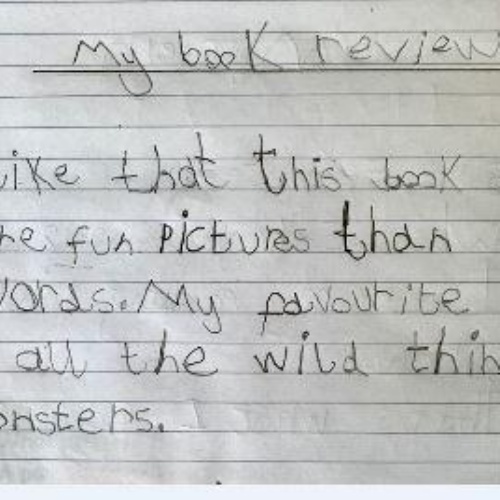 My book review
ike that this book
re fun pictures than
words. My favourite
all the wild thin
onsters.